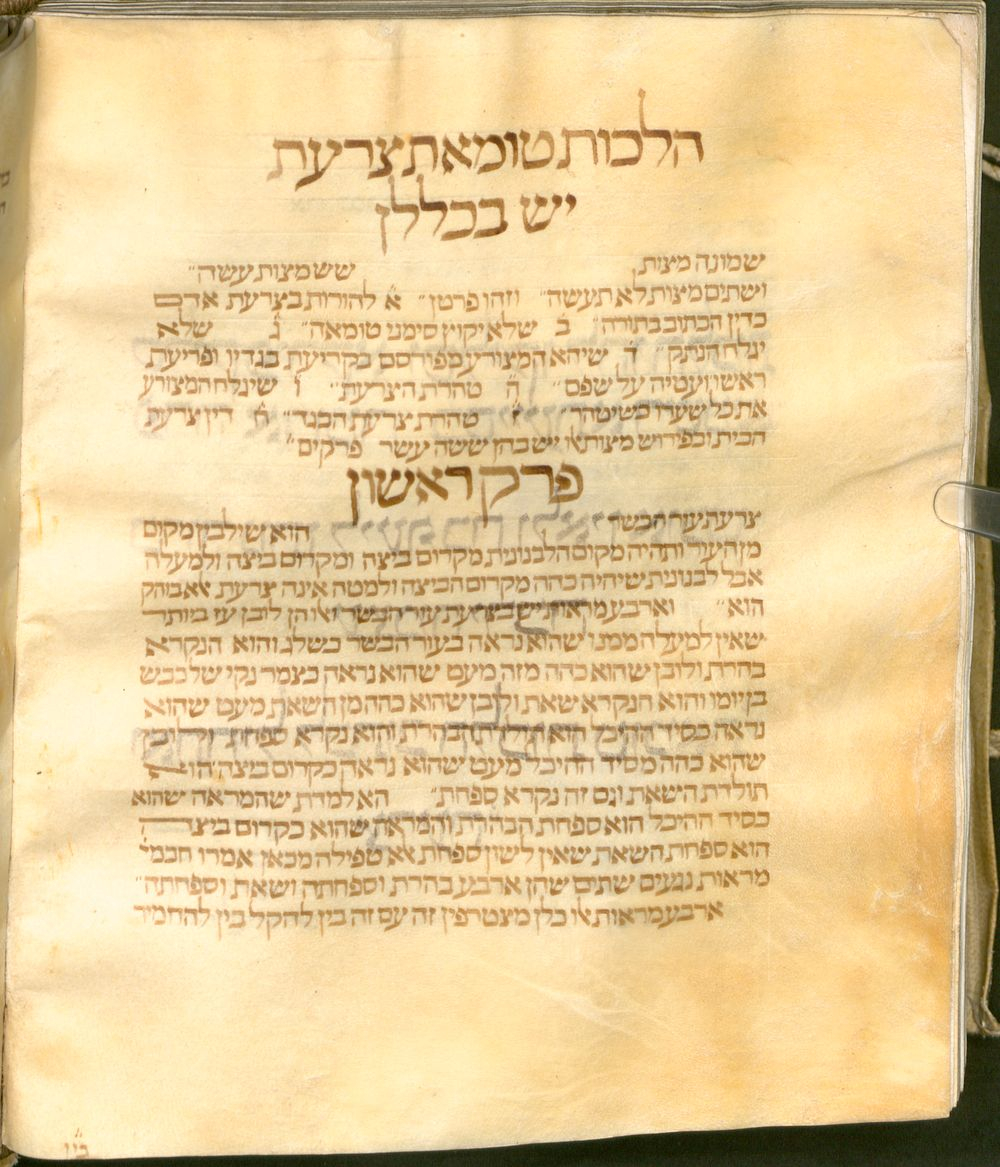 הלכות טומאת צרעת
יש בכללן
שמונה מצות, שש מצות עשה״
ושתים מצות לא תעשה״ וזהו פרטן״ א להורות בצרעת אדם
כדין הכתוב בתורה״ ב שלא יקוץ סימני טומאה״ ג שלא
יגלח הנתק״ ד שיהא המצורע מפורסם בקריעת בגדיו ופריעת
ראשו ועטיה על שפם״ ה טהרת הצרעת״ ו שיגלח המצורע
את כל שערו כשיטהר״ ז טהרת צרעת הבגד״ ח דין צרעת
הבית ובפירוש מצות אלו יש בהן ששה עשר פרקים״
פרק ראשון
צרעת עור הבשר הוא שילבין מקום
מן העור ותהיה מקום הלבנונית מקרום ביצה ומקרום ביצה ולמעלה
אבל לבנונית שיהיה כהה מקרום הביצה ולמטה אינה צרעת אלא בוהק
הוא״ וארבע מראות יש בצרעת עור הבשר ואלו הן לובן עז ביותר
שאין למעלה ממנו שהוא נראה בעור הבשר כשלג והוא הנקרא
בהרת ולובן שהוא כהה מזה מעט שהוא נראה כצמר נקי של כבש
בן יומו והוא הנקרא שאת ולובן שהוא כהה מן השאת מעט שהוא
נראה כסיד ההיכל הוא תולדת הבהרת והוא נקרא ספחת ולובן
שהוא כהה מסיד ההיכל מעט שהוא נראה כקרום ביצה הוא
תולדת השאת וגם זה נקרא ספחת״ הא למדת שהמראה שהוא
כסיד ההיכל הוא ספחת הבהרת והמראה שהוא כקרום ביצה
הוא ספחת השאת שאין לשון ספחת אלא טפילה מכאן אמרו חכמי׳
מראות נגעים שתים שהן ארבע בהרת וספחתה ושאת וספחתה״
ארבע מראות אלו כלן מצטרפין זה עם זה בין להקל בין להחמיר
בין